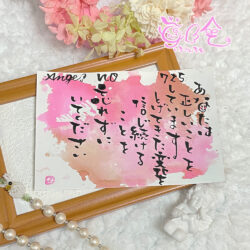 Angel NO
725
あなたは
正しいことを
しています
しげてきた変を
信じ続ける
ことを
忘れずに
いてください